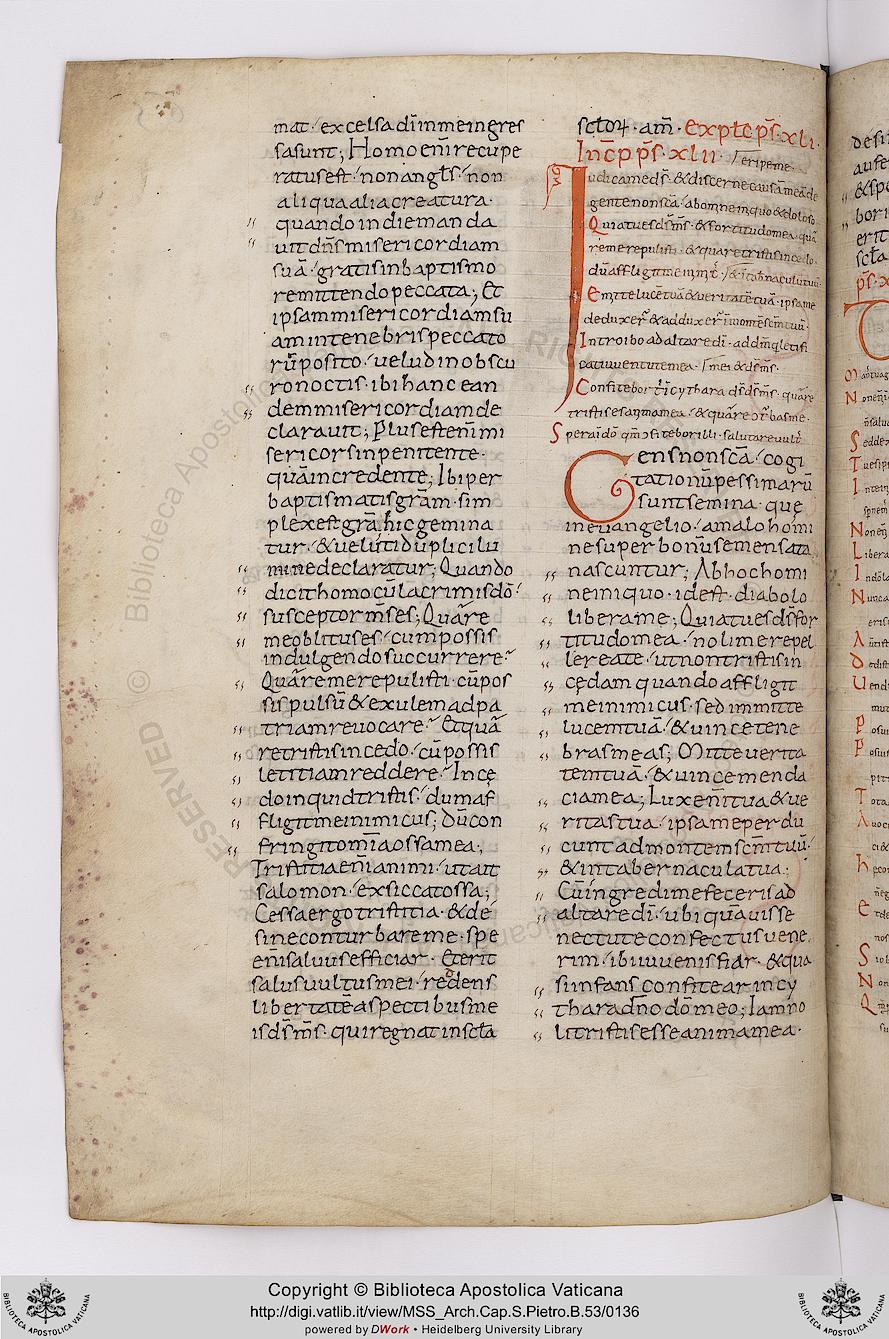 mat / excelsa dī in me ingres
sa sunt; Homo enī recupe
ratus est / non angl̄s / non
aliqua alia creatura ·
quando in die manda
uit dn̄s misericordiam
suā / gratis in baptismo
remittendo peccata; Et
ipsam misericordiam su
am in tenebris peccato
rū posito / uelud in obscu
ro noctis · ibi hanc ean
dem misericordiam de
clarauit; Plus est enī mi
sericors in penitente ·
quā in credente; Ibi per
baptismatis grām · sim
plex est grā, hic gemina
tur · & uelut i duplici lu
mine declaratur; Quando
dicit homo cū lacrimis dō /
susceptor m̄s es; Quāre
me oblitus es / cum possis
indulgendo succurrere /
Quāre me repulisti · cū pos
sis pulsū & exulem ad pa
triam reuocare / Et quā
re tristis incedo · cū possis
letitiam reddere / Ince
do inquid tristis / dum af
fligit me inimicus; dū con
fringit om̄ia ossa mea;
Tristitia enī animi / ut ait
salomon / exsiccat ossa;
Cessa ergo tristitia · & de
sine conturbare me · spe
enī saluus efficiar · Et erit
salus uultus mei / redens
libertatē aspectibus me
is ds̄ m̄s · qui regnat in sc̄la
sclorꝝ · am̄ · explc̄ ps̄ · xli ·
Inc̄p ps̄ · xlii · / eripe me ·
Iudica me ds̄ · & discerne causā meā de
gente non sc̄a · ab omine iniquo & doloso
Quia tu es ds̄ m̄s · & fortitudo mea · quā
re me repulisti · & quare tristis incedo
dū affligit me inim̄ · / & ī tab̄nacula tua
Emitte lucē tuā & ueritatē tuā · ipsa me
deduxer̄ & adduxer̄ ī montē sc̄m tuū ·
Introibo ad altare dī · ad dm̄ q letifi
cat iuuentutē mea · / mei & ds̄ m̄s ·
Confitebor t̄ ī cythara ds̄ ds̄ m̄s · quāre
tristis es anima mea · & quāre ↄt̄ bas me ·
Spera ī dō qm̄ ↄfitebor illi · salutare uult̄
Gens non sc̄a / cogi
tationū pessimarū
sunt semina · que
in euangelio · a malo homi
ne super bonū semen sata
nascuntur; Ab hoc homi
ne iniquo · id est · diabolo
libera me; Quia tu es ds̄ for
titudo mea / noli me repel
lere a te / ut non tristis in
cedam quando affligit
me inimicus · sed immitte
lucem tuā / & uince tene
bras meas; Mitte uerita
tem tuā / & uince menda
cia mea; Lux enī tua & ue
ritas tua / ipsa me perdu
cunt ad montem sc̄m tuū /
& in tabernacula tua;
Cū ingredi me feceris ad
altare dī / ubi quāuis se
nectute confectus uene
rim / ibi iuuenis fiā · & qua
si infans confitear in cy
thara dn̄o dō meo; Iam no
li tristis esse anima mea ·
Copyright © Biblioteca Apostolica Vaticana
http://digi.vatlib.it/view/MSS_Arch.Cap.S.Pietro.B.53/0136
powered by DWork • Heidelberg University Library